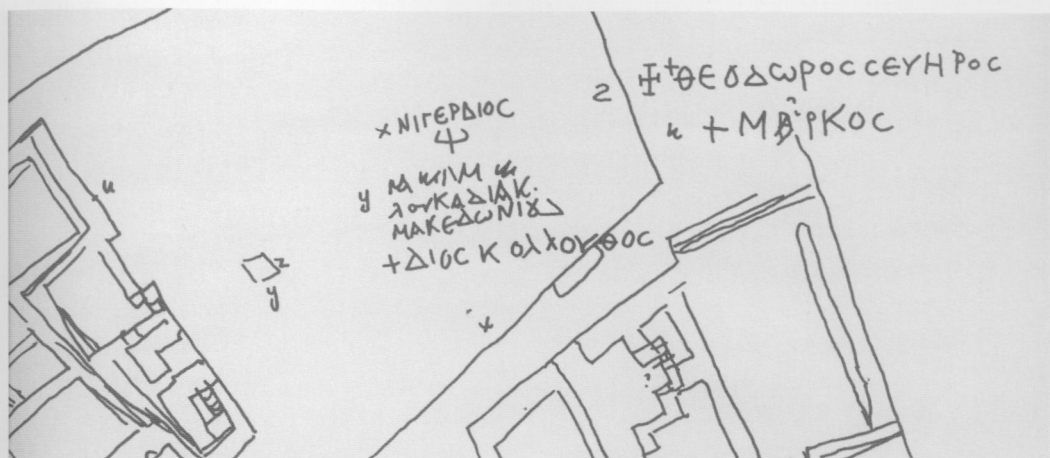 2 ⳨+ΘΕΟΔωΡΟC CΕΥΗΡΟC
u + ΜΑΡΚΟC
x ΝΙΓΕΡΔΙΟC
Ψ
y
λουΚΑΔΙΑΚ.
ΜΑΚΕΔωΝΙȣ
+ΔΙΟC ΚΟλλΟΥΘΟC
u
z
y
x
?